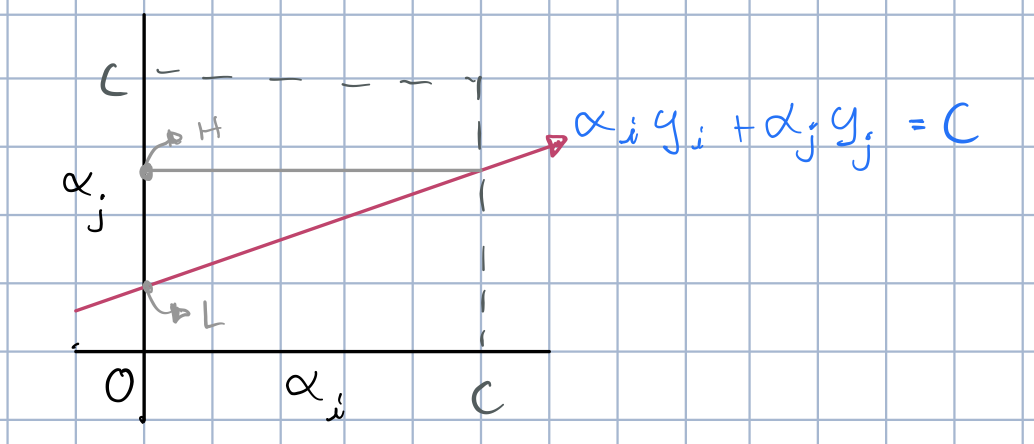 C
H
αᵢyᵢ + αⱼyⱼ = C
αⱼ
L
O
αᵢ
C